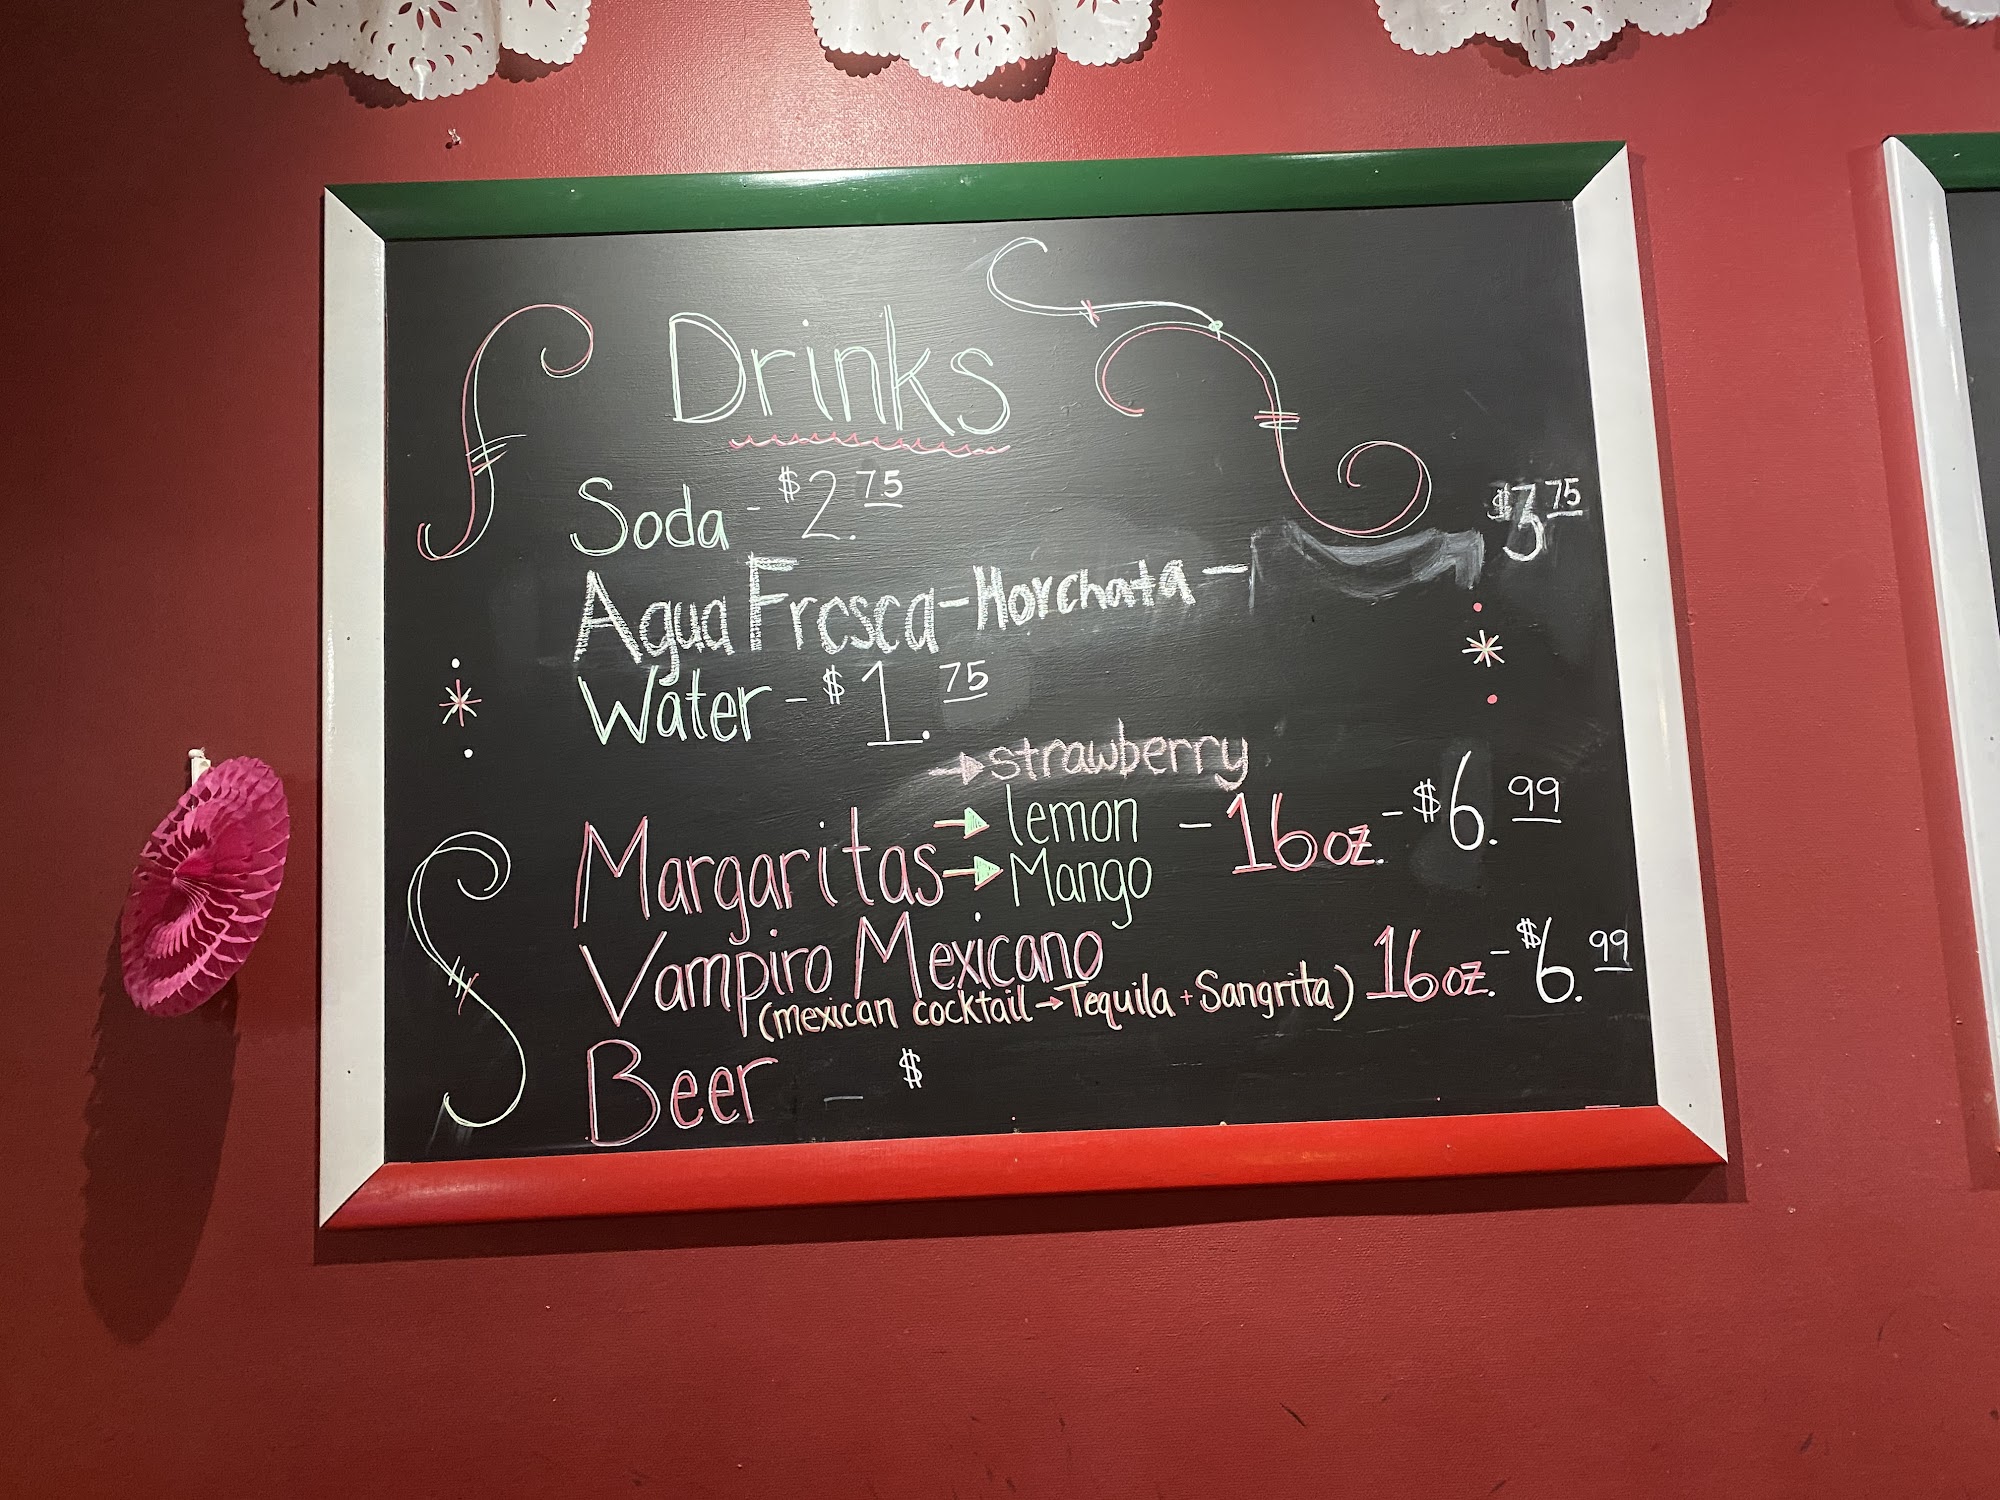 Drinks
Soda - $2.75
Agua Fresca - Horchata - $3.75
Water - $1.75
→ strawberry
Margaritas → lemon - 16 oz. - $6.99
→ Mango
Vampiro Mexicano 16 oz. - $6.99
(mexican cocktail → Tequila + Sangrita)
Beer - $